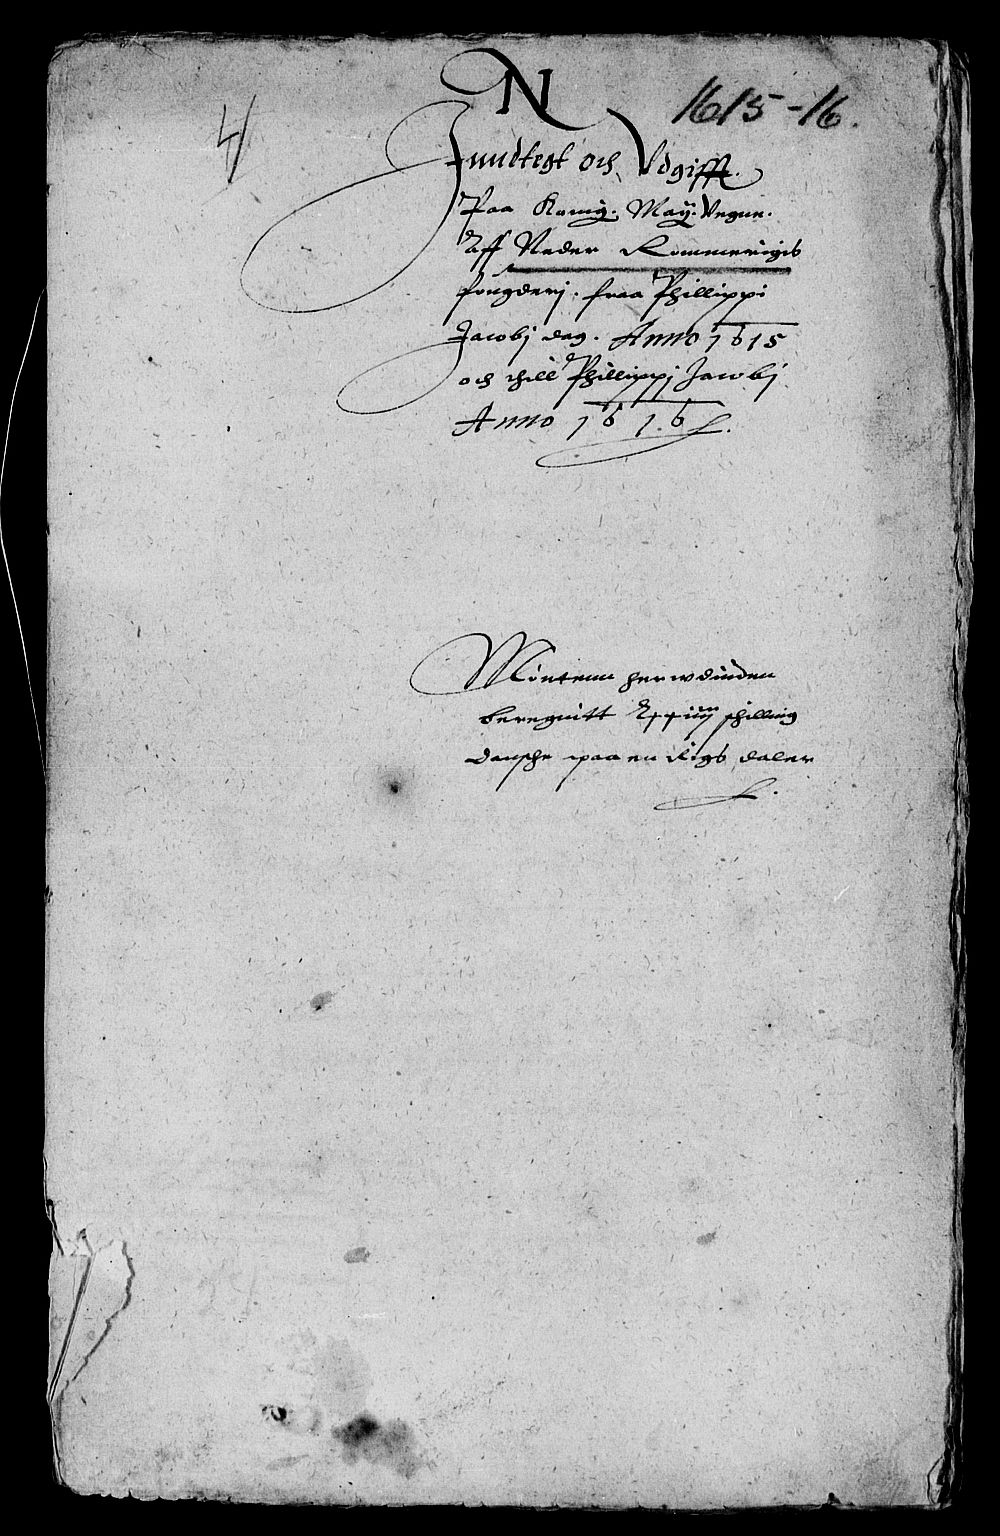 N
4
1615-16.
Inndtegt och Vdgifft.
Paa Konng. May: Vegne.
Aff Neder Rommerigis
fougderj. fraa Phillippi
Jacobj dag. Anno 1615
och thill Phillippj Jacobj
Anno 1616
Möntenn herwdinden
beregnitt Lxxxiiij schilling
Dansche paa en Rigs daler